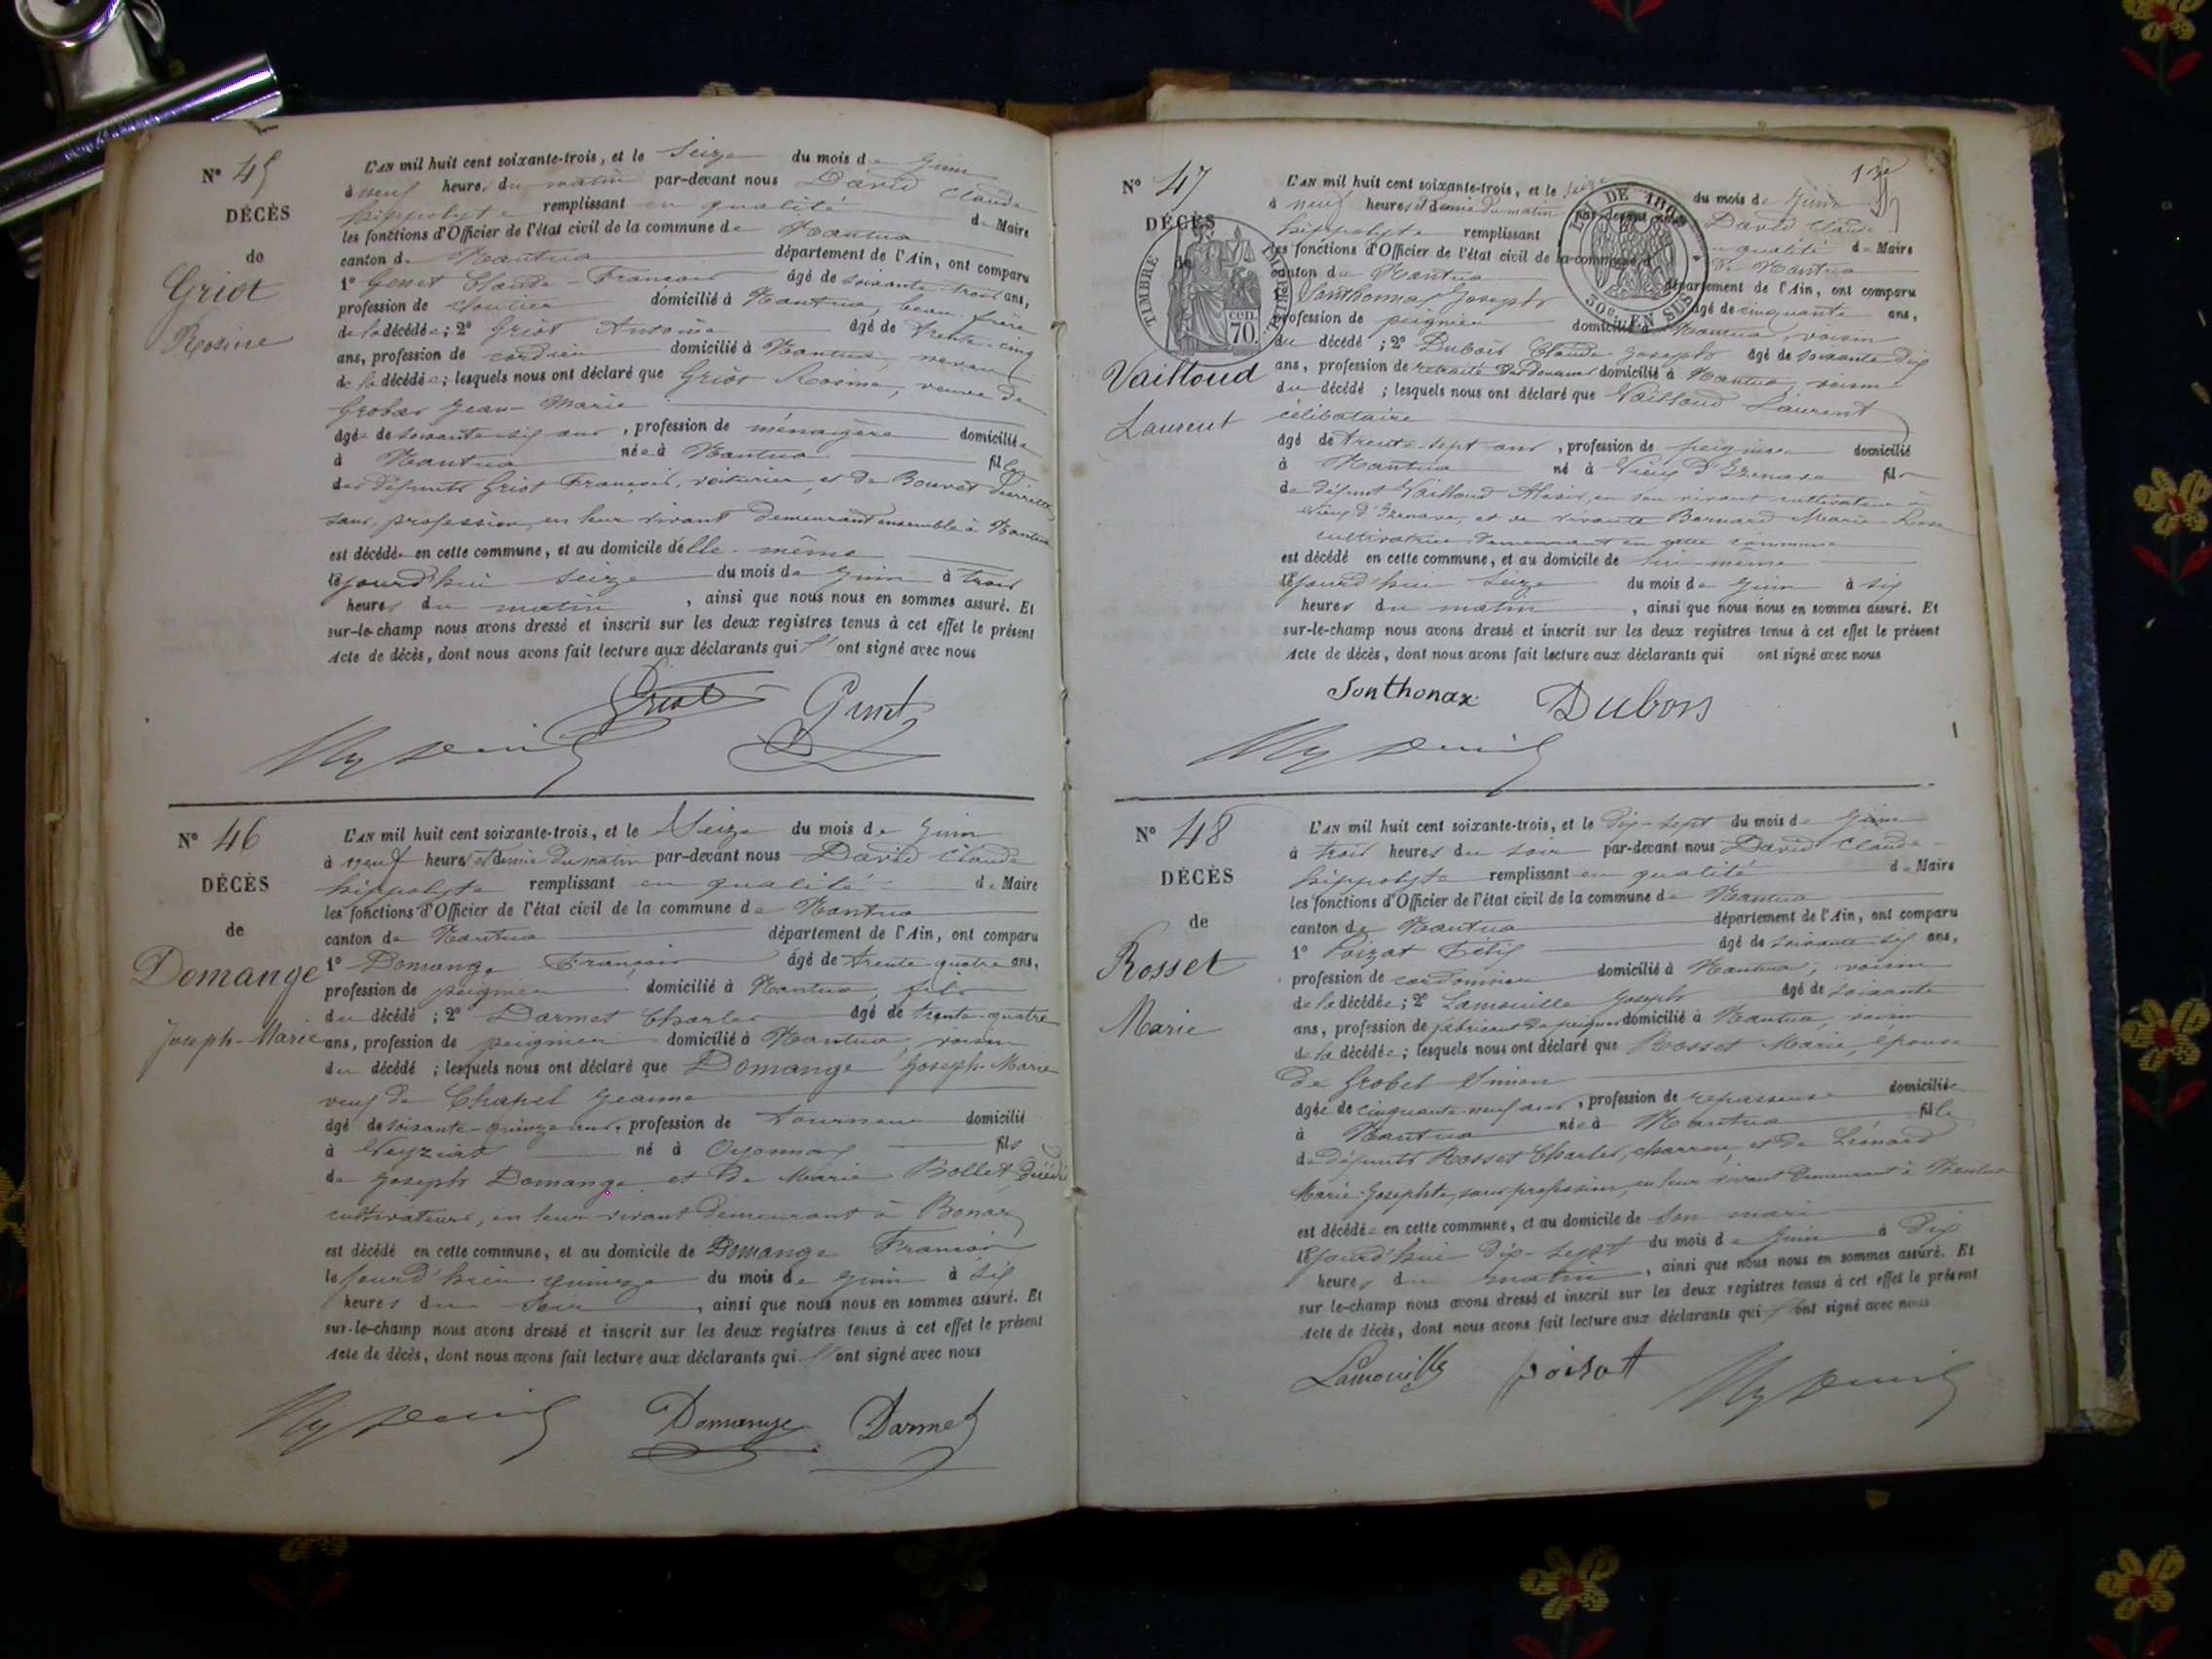 N° 45
DÉCÈS
de
Griot
Rosine
L'AN mil huit cent soixante-trois, et le Seize du mois de Juin
à neuf heures du matin par-devant nous David Claude
hippolyte remplissant en qualité de Maire
les fonctions d'Officier de l'état civil de la commune de Nantua
canton de Nantua département de l'Ain, ont comparu
1° Genet Claude-François âgé de soixante-trois ans,
profession de domicilié à Nantua, beau-frère
de la décédée; 2° Griot Antoine âgé de trente-cinq
ans, profession de cordier domicilié à Nantua, neveu
de la décédée; lesquels nous ont déclaré que Griot Rosine, veuve de
Grobas Jean-Marie
âgée de soixante-six ans, profession de ménagère domiciliée
à Nantua née à Nantua fille
des défunts Griot François, voiturier, et de Bouvet Pierrette
sans profession, en leur vivant demeurant ensemble à Nantua
est décédée en cette commune, et au domicile d'elle-même
cejourd'hui seize du mois de Juin à trois
heures du matin, ainsi que nous nous en sommes assuré. Et
sur-le-champ nous avons dressé et inscrit sur les deux registres tenus à cet effet le présent
Acte de décès, dont nous avons fait lecture aux déclarants qui ont signé avec nous
Griot Genet
N° 46
DÉCÈS
de
Domange
Joseph-Marie
L'AN mil huit cent soixante-trois, et le Seize du mois de Juin
à neuf heures et demie du matin par-devant nous David Claude
hippolyte remplissant en qualité de Maire
les fonctions d'Officier de l'état civil de la commune de Nantua
canton de Nantua département de l'Ain, ont comparu
1° Domange François âgé de trente-quatre ans,
profession de peignier domicilié à Nantua, fils
du décédé; 2° Darmet Charles âgé de trente-quatre
ans, profession de peignier domicilié à Nantua, voisin
du décédé; lesquels nous ont déclaré que Domange Joseph-Marie
veuf de Chapel Jeanne
âgé de soixante-quinze ans, profession de tourneur domicilié
à Veyziat né à Oyonnax fils
de Joseph Domange et de Marie Bollet, décédés
cultivateurs, en leur vivant demeurant à
est décédé en cette commune, et au domicile de Domange François
le jourd'hier quinze du mois de Juin à six
heures du soir, ainsi que nous nous en sommes assuré. Et
sur-le-champ nous avons dressé et inscrit sur les deux registres tenus à cet effet le présent
Acte de décès, dont nous avons fait lecture aux déclarants qui ont signé avec nous
Domange Darmet
N° 47
DÉCÈS
de
Vailloud
Laurent
TIMBRE IMPERIAL
70 cen.
LOI DE 1862
50c. EN SUS
L'AN mil huit cent soixante-trois, et le seize du mois de Juin
à neuf heures et demie du matin par-devant nous David Claude
hippolyte remplissant en qualité de Maire
les fonctions d'Officier de l'état civil de la commune de Nantua
canton de Nantua département de l'Ain, ont comparu
1° Sonthonnax Joseph âgé de cinquante ans,
profession de peignier domicilié à Nantua, voisin
du décédé; 2° Dubois Claude-Joseph âgé de soixante-dix
ans, profession de retraité des Douanes domicilié à Nantua, voisin
du décédé; lesquels nous ont déclaré que Vailloud Laurent
célibataire
âgé de trente-sept ans, profession de peignier domicilié
à Nantua né à Vieux d'Izenave fils
de défunt Vailloud en son vivant cultivateur à
Vieux d'Izenave, et de vivante Bernard Marie-
cultivatrice demeurant en cette commune
est décédé en cette commune, et au domicile de lui-même
cejourd'hui seize du mois de Juin à six
heures du matin, ainsi que nous nous en sommes assuré. Et
sur-le-champ nous avons dressé et inscrit sur les deux registres tenus à cet effet le présent
Acte de décès, dont nous avons fait lecture aux déclarants qui ont signé avec nous
Sonthonax Dubois
N° 48
DÉCÈS
de
Rosset
Marie
L'AN mil huit cent soixante-trois, et le dix-sept du mois de Juin
à trois heures du soir par-devant nous David Claude-
hippolyte remplissant en qualité de Maire
les fonctions d'Officier de l'état civil de la commune de Nantua
canton de Nantua département de l'Ain, ont comparu
1° Poizat Félix âgé de soixante-six ans,
profession de cordonnier domicilié à Nantua, voisin
de la décédée; 2° Lamouille Joseph âgé de soixante
ans, profession de fabricant de peignes domicilié à Nantua, voisin
de la décédée; lesquels nous ont déclaré que Rosset Marie, épouse
de Grobel Simon
âgée de cinquante-neuf ans, profession de repasseuse domiciliée
à Nantua née à Nantua fille
de défunts Rosset Charles, charron, et de Léonard
Marie-Josephte, sans profession, en leur vivant demeurant à Nantua
est décédée en cette commune, et au domicile de son mari
cejourd'hui dix-sept du mois de Juin à dix
heures du matin, ainsi que nous nous en sommes assuré. Et
sur le-champ nous avons dressé et inscrit sur les deux registres tenus à cet effet le présent
Acte de décès, dont nous avons fait lecture aux déclarants qui ont signé avec nous
Lamouille poisat